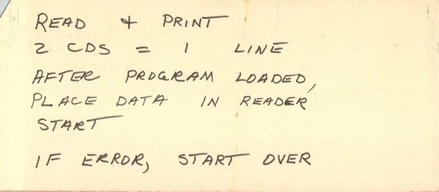 READ + PRINT
2 CDS = 1 LINE
AFTER PROGRAM LOADED,
PLACE DATA IN READER
START
IF ERROR, START OVER